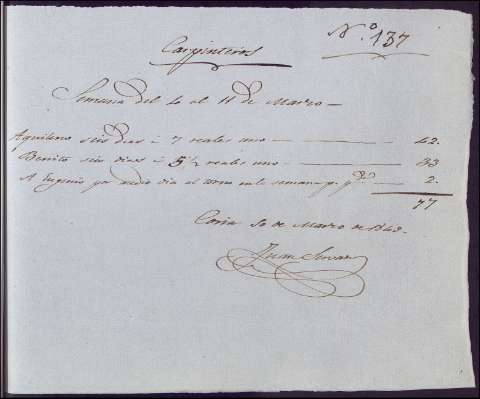 N.º 137
Carpinteros
Semana del 6 al 11 de Marzo
Aquilino seis dias á 7 reales uno 42.
Benito seis dias á 5 1/2 reales uno 33
A Eugenio por medio dia al torno en la semana p. p.da 2.
77
Coria 10 de Marzo de 1848.
Juan